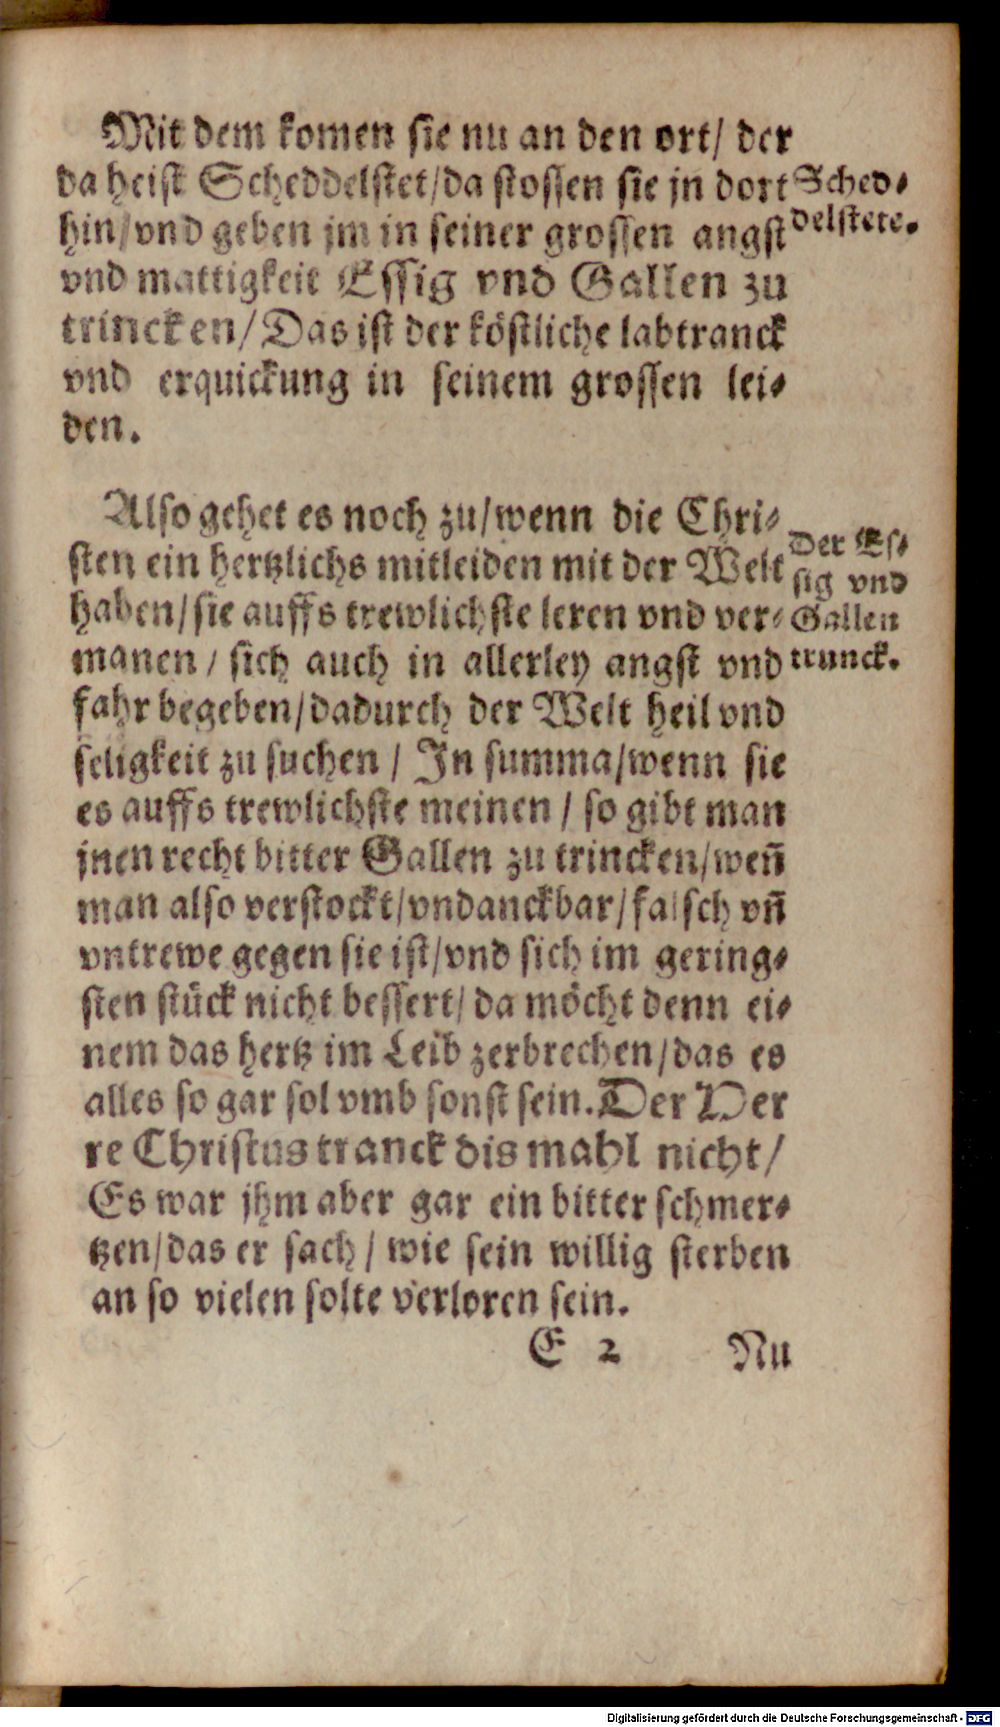 Mit dem komen sie nu an den ort/ der
da heist Scheddelstet/da stossen sie jn dort
hin/vnd geben jm in seiner grossen angst
vnd mattigkeit Essig vnd Gallen zu
trincken/Das ist der köstliche labtranck
vnd erquickung in seinem grossen lei-
den.
Sched-
delstete.
Also gehet es noch zu/wenn die Chri-
sten ein hertzlichs mitleiden mit der Welt
haben/sie auffs trewlichste leren vnd ver-
manen/ sich auch in allerley angst vnd
fahr begeben/dadurch der Welt heil vnd
seligkeit zu suchen / In summa/wenn sie
es auffs trewlichste meinen / so gibt man
jnen recht bitter Gallen zu trincken/weñ
man also verstockt/vndanckbar/falsch vñ
vntrewe gegen sie ist/vnd sich im gering-
sten stück nicht bessert/ da möcht denn ei-
nem das hertz im Leib zerbrechen/das es
alles so gar sol vmb sonst sein. Der Her
re Christus tranck dis mahl nicht/
Es war jhm aber gar ein bitter schmer-
tzen/das er sach/ wie sein willig sterben
an so vielen solte verloren sein.
Der Es-
sig vnd
Gallen
trunck.
E 2 Nu
Digitalisierung gefördert durch die Deutsche Forschungsgemeinschaft - DFG